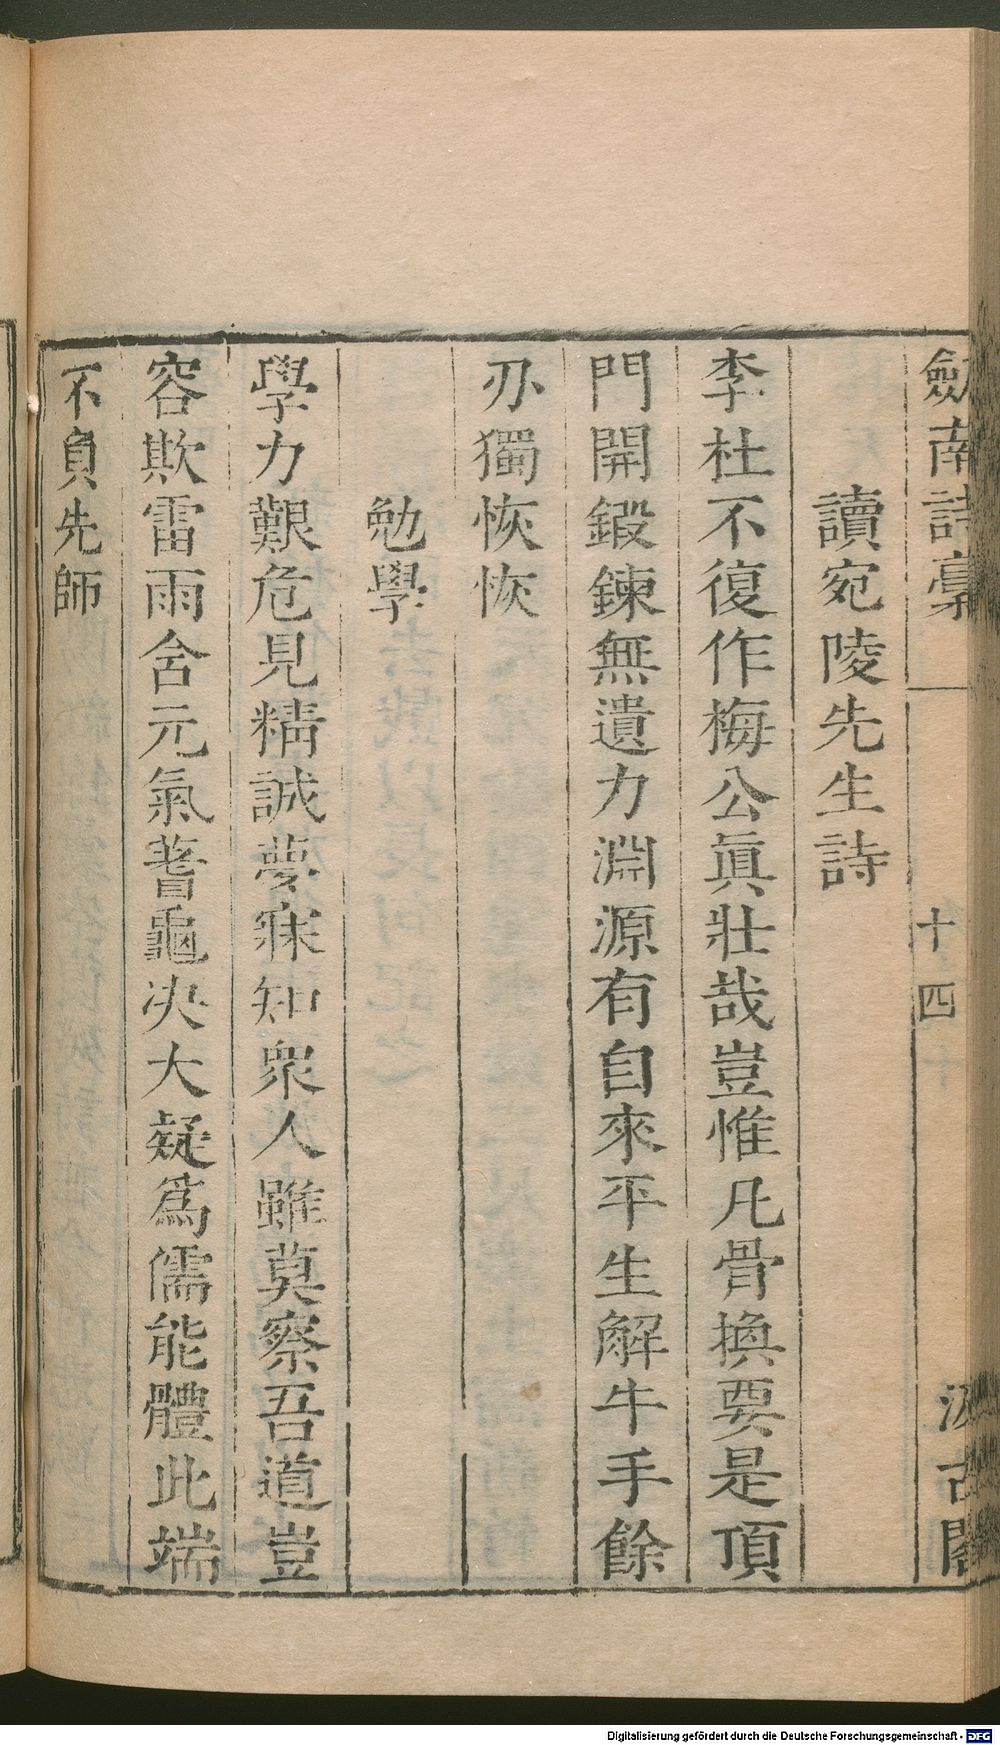 劒南詩稾 十四 汲古閣
讀宛陵先生詩
李杜不復作梅公眞壯哉豈惟凡骨換要是頂
門開鍛鍊無遺力淵源有自來平生解牛手餘
刃獨恢恢
勉學
學力艱危見精誠夢寐知衆人雖莫察吾道豈
容欺雷雨含元氣蓍龜决大疑爲儒能體此端
不負先師
Digitalisierung gefördert durch die Deutsche Forschungsgemeinschaft - DFG